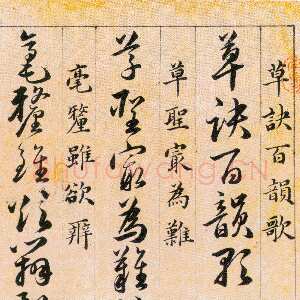 草訣百韻歌
草訣百韻歌
草聖最為難
草聖最為難
毫釐雖欲辨
毫釐雖欲辨